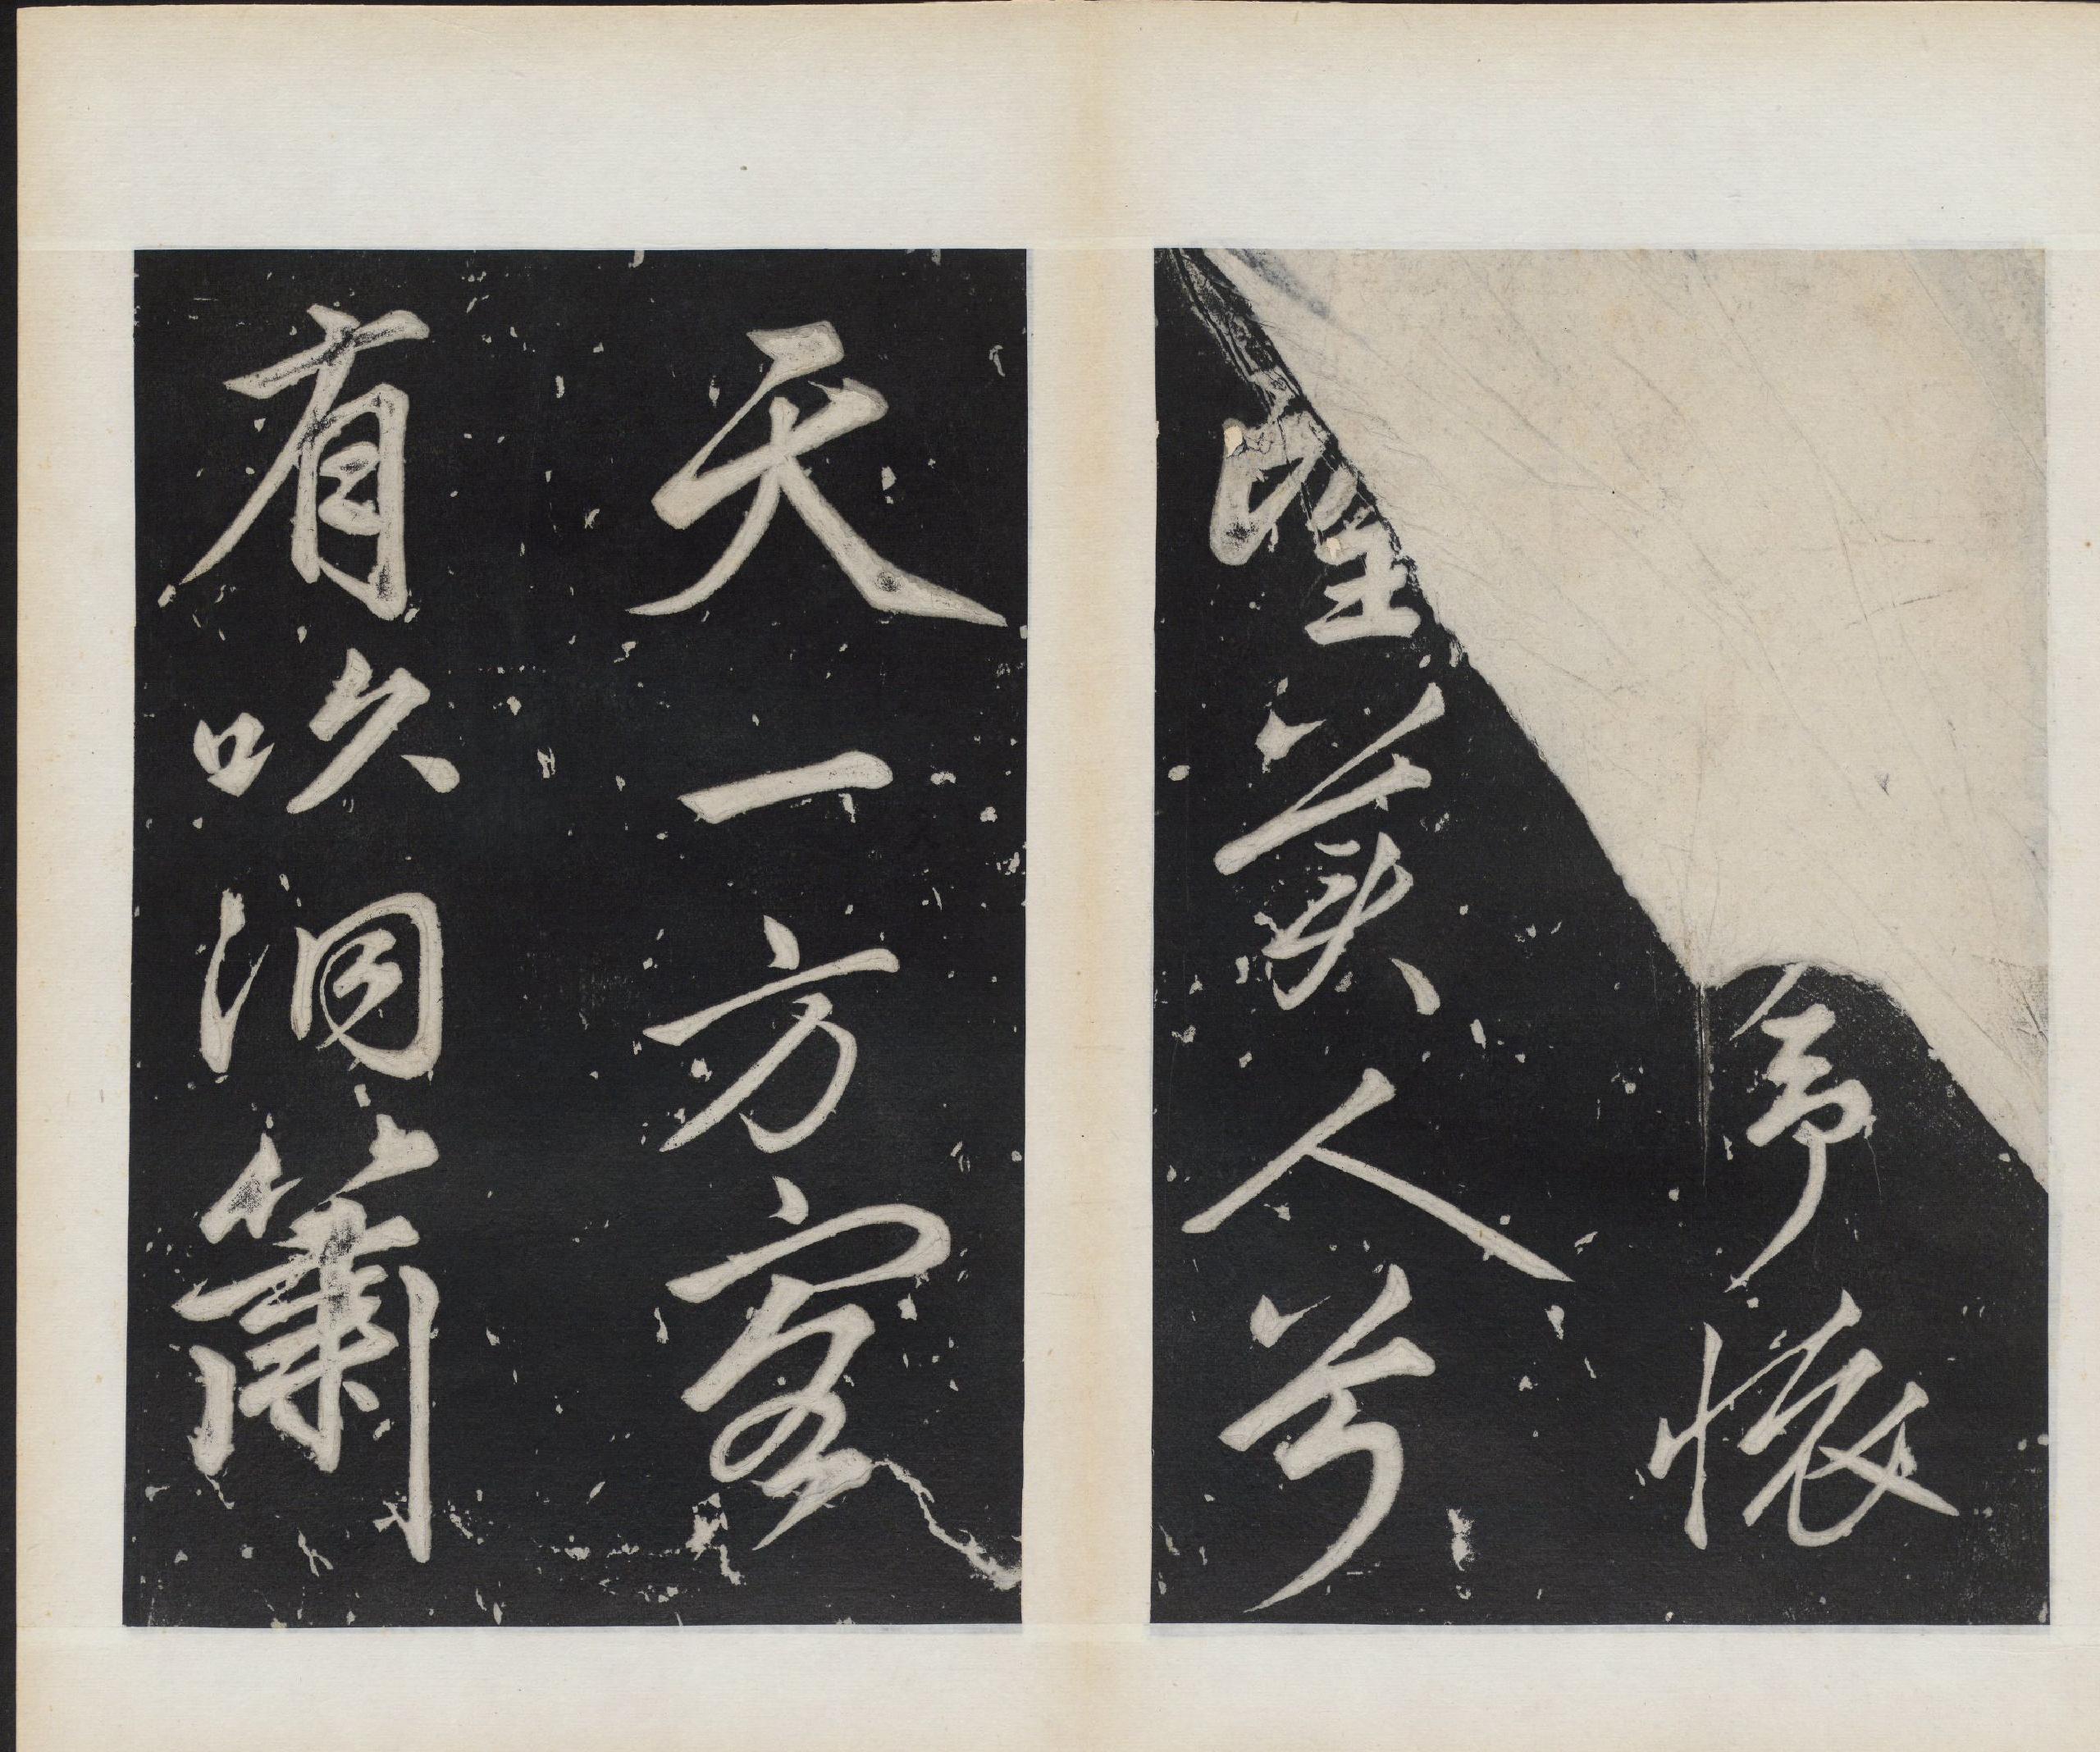 予懷
望美人兮
天一方客
有吹洞簫